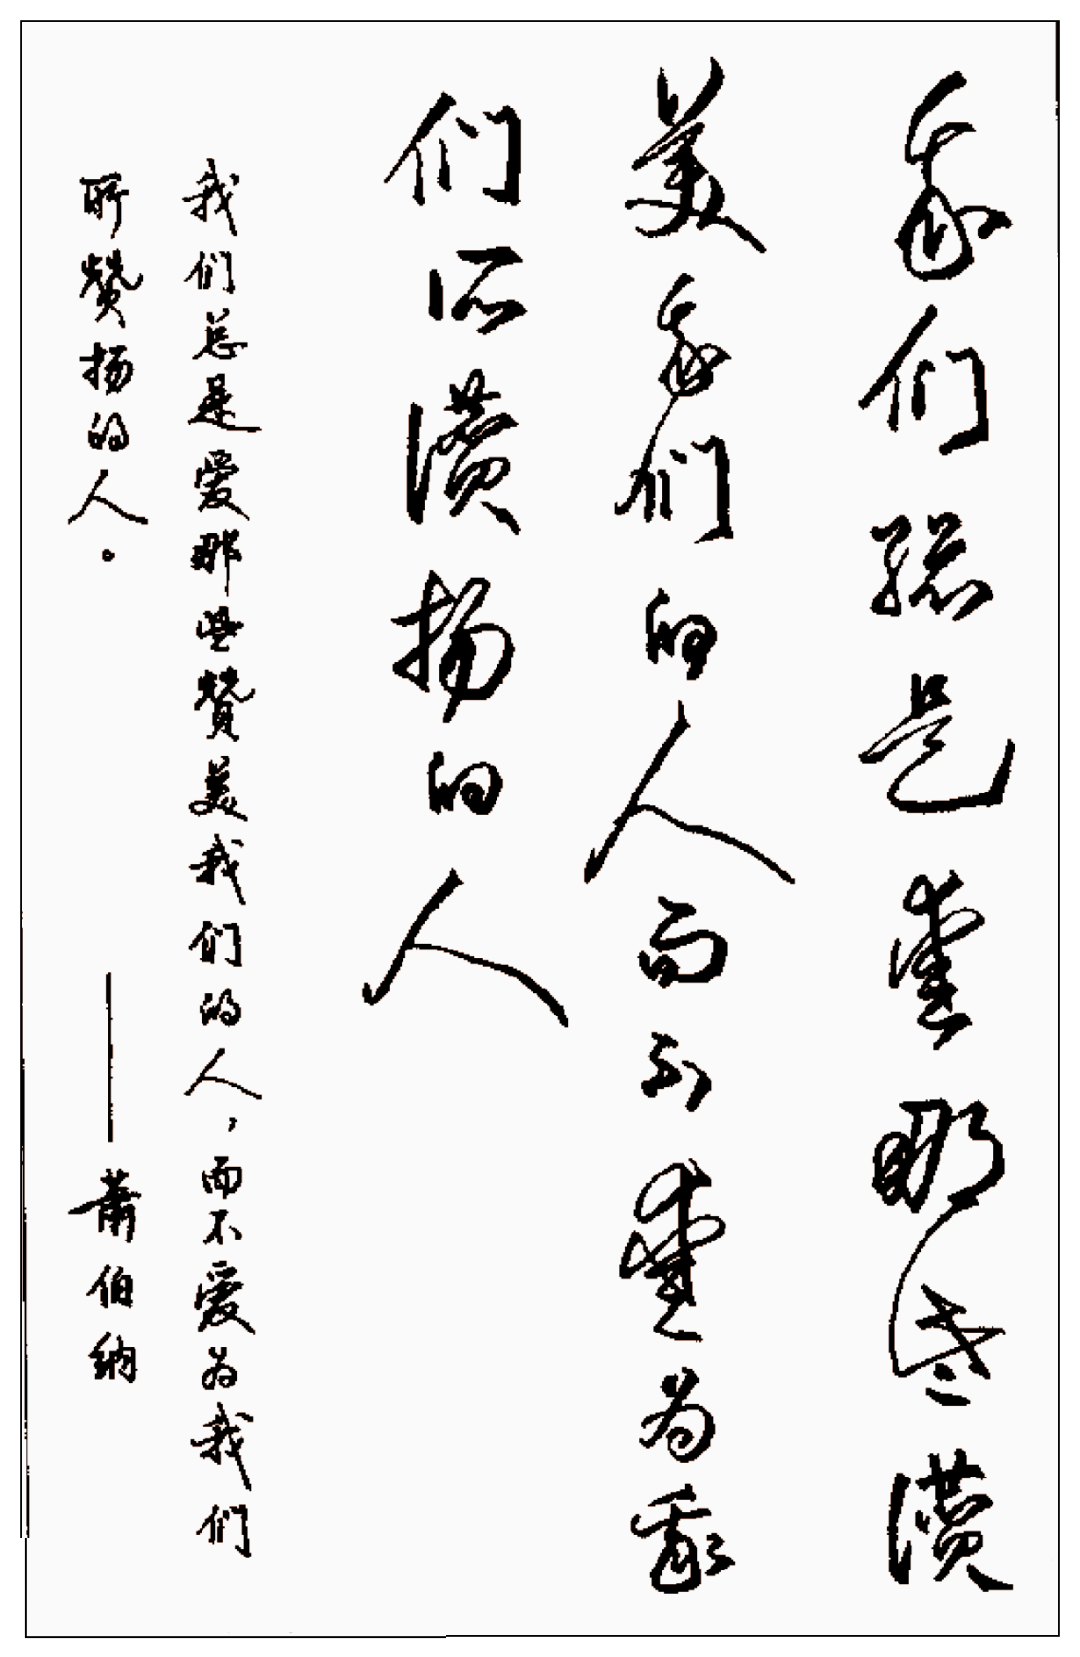 我们总是爱那些讃
美我们的人而不爱为我
们所讃扬的人
我们总是爱那些赞美我们的人，而不爱为我们
所赞扬的人。——萧伯纳